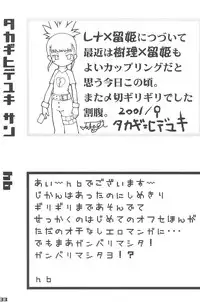 タカギヒデユキ サン
レナ×留姫につづいて
最近は樹理×留姫も
よいカップリングだと
思う今日この頃。
また〆切ギリギリでした
割腹。 2001/9
タカギヒデユキ
hb
あい〜hbでございます〜
じかんはあったのにしめきり
ギリギリまであそんでて
せっかくのはじめてのオフセほんが
ただのオモなしエロマンガに･･･
でもまあガンバリマシタ！
ガンバリマシタヨ！？
hb
33